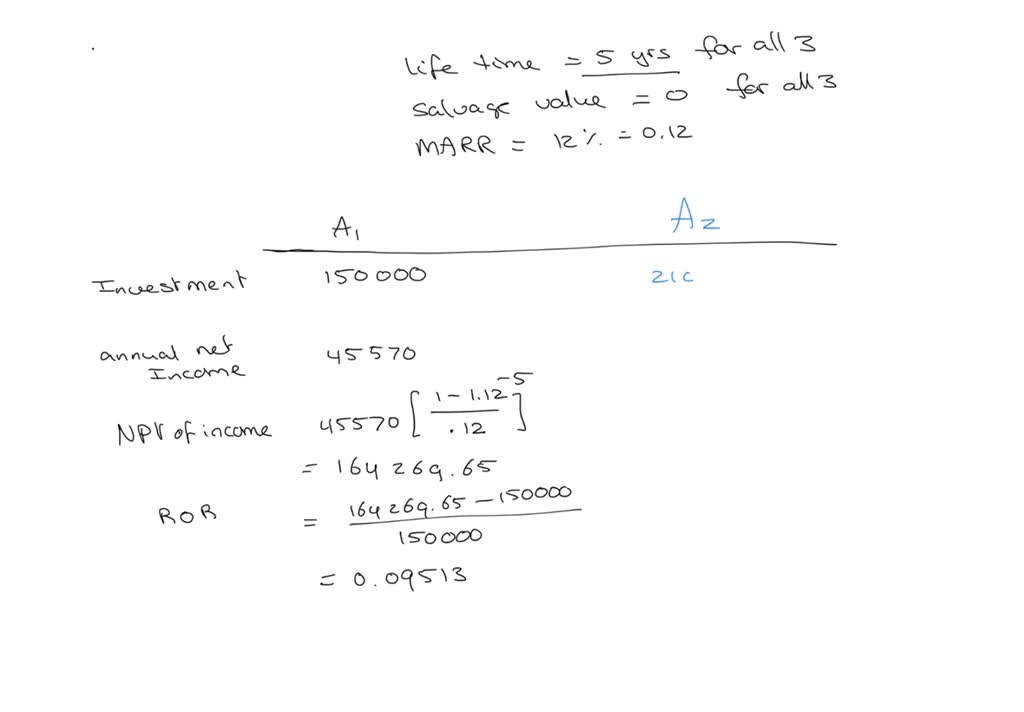 life time = 5 yrs for all 3
salvage value = 0 for all 3
MARR = 12 % = 0.12
A1 A2
Investment 150 000 21c
annual net Income 45 570
NPV of income 45570 [ 1 - 1.12^-5 / .12 ]
= 164 269.65
ROR = 164 269.65 - 150000 / 150000
= 0.09513